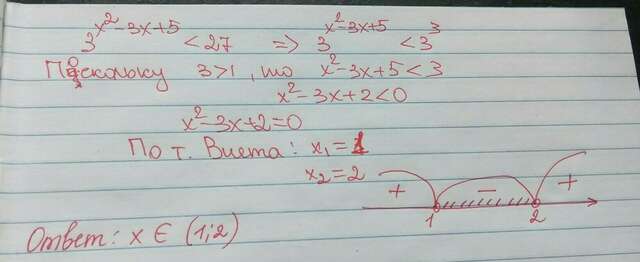 3^(x²-3x+5) < 27 => 3^(x²-3x+5) < 3³
Поскольку 3>1, то x²-3x+5<3
x²-3x+2<0
x²-3x+2=0
По т. Виета: x₁=1
x₂=2
+ - +
1 2
Ответ: x ∈ (1;2)